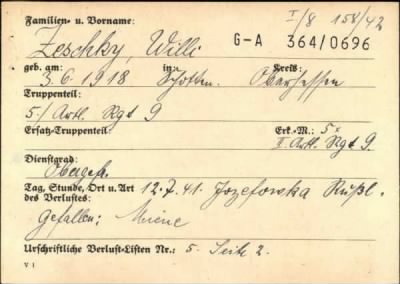 Familien- u. Vorname: I/8 158/42
Zeschky, Willi G-A 364/0696
geb. am: in: Kreis:
3.6.1918 Schotten. Oberhessen
Truppenteil:
5./ Artl. Rgt 9
Ersatz-Truppenteil: Erk.-M.: 5x
I. Artl. Rgt 9.
Dienstgrad:
Obergefr.
Tag, Stunde, Ort u. Art 12.7.41. Jozefowska Rußl.
des Verlustes:
Gefallen: Miene
Urschriftliche Verlust-Listen Nr.: 5. Seite 2.
V 1